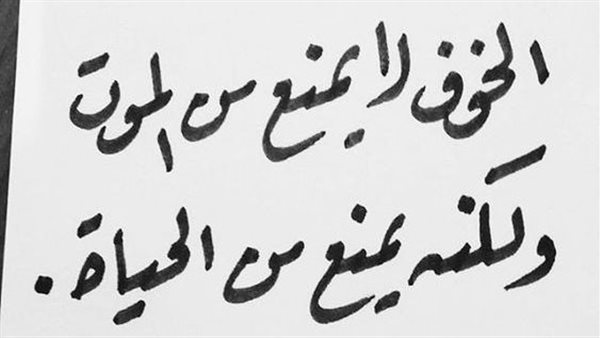 الخوف لا يمنع من الموت
ولكنه يمنع من الحياة.